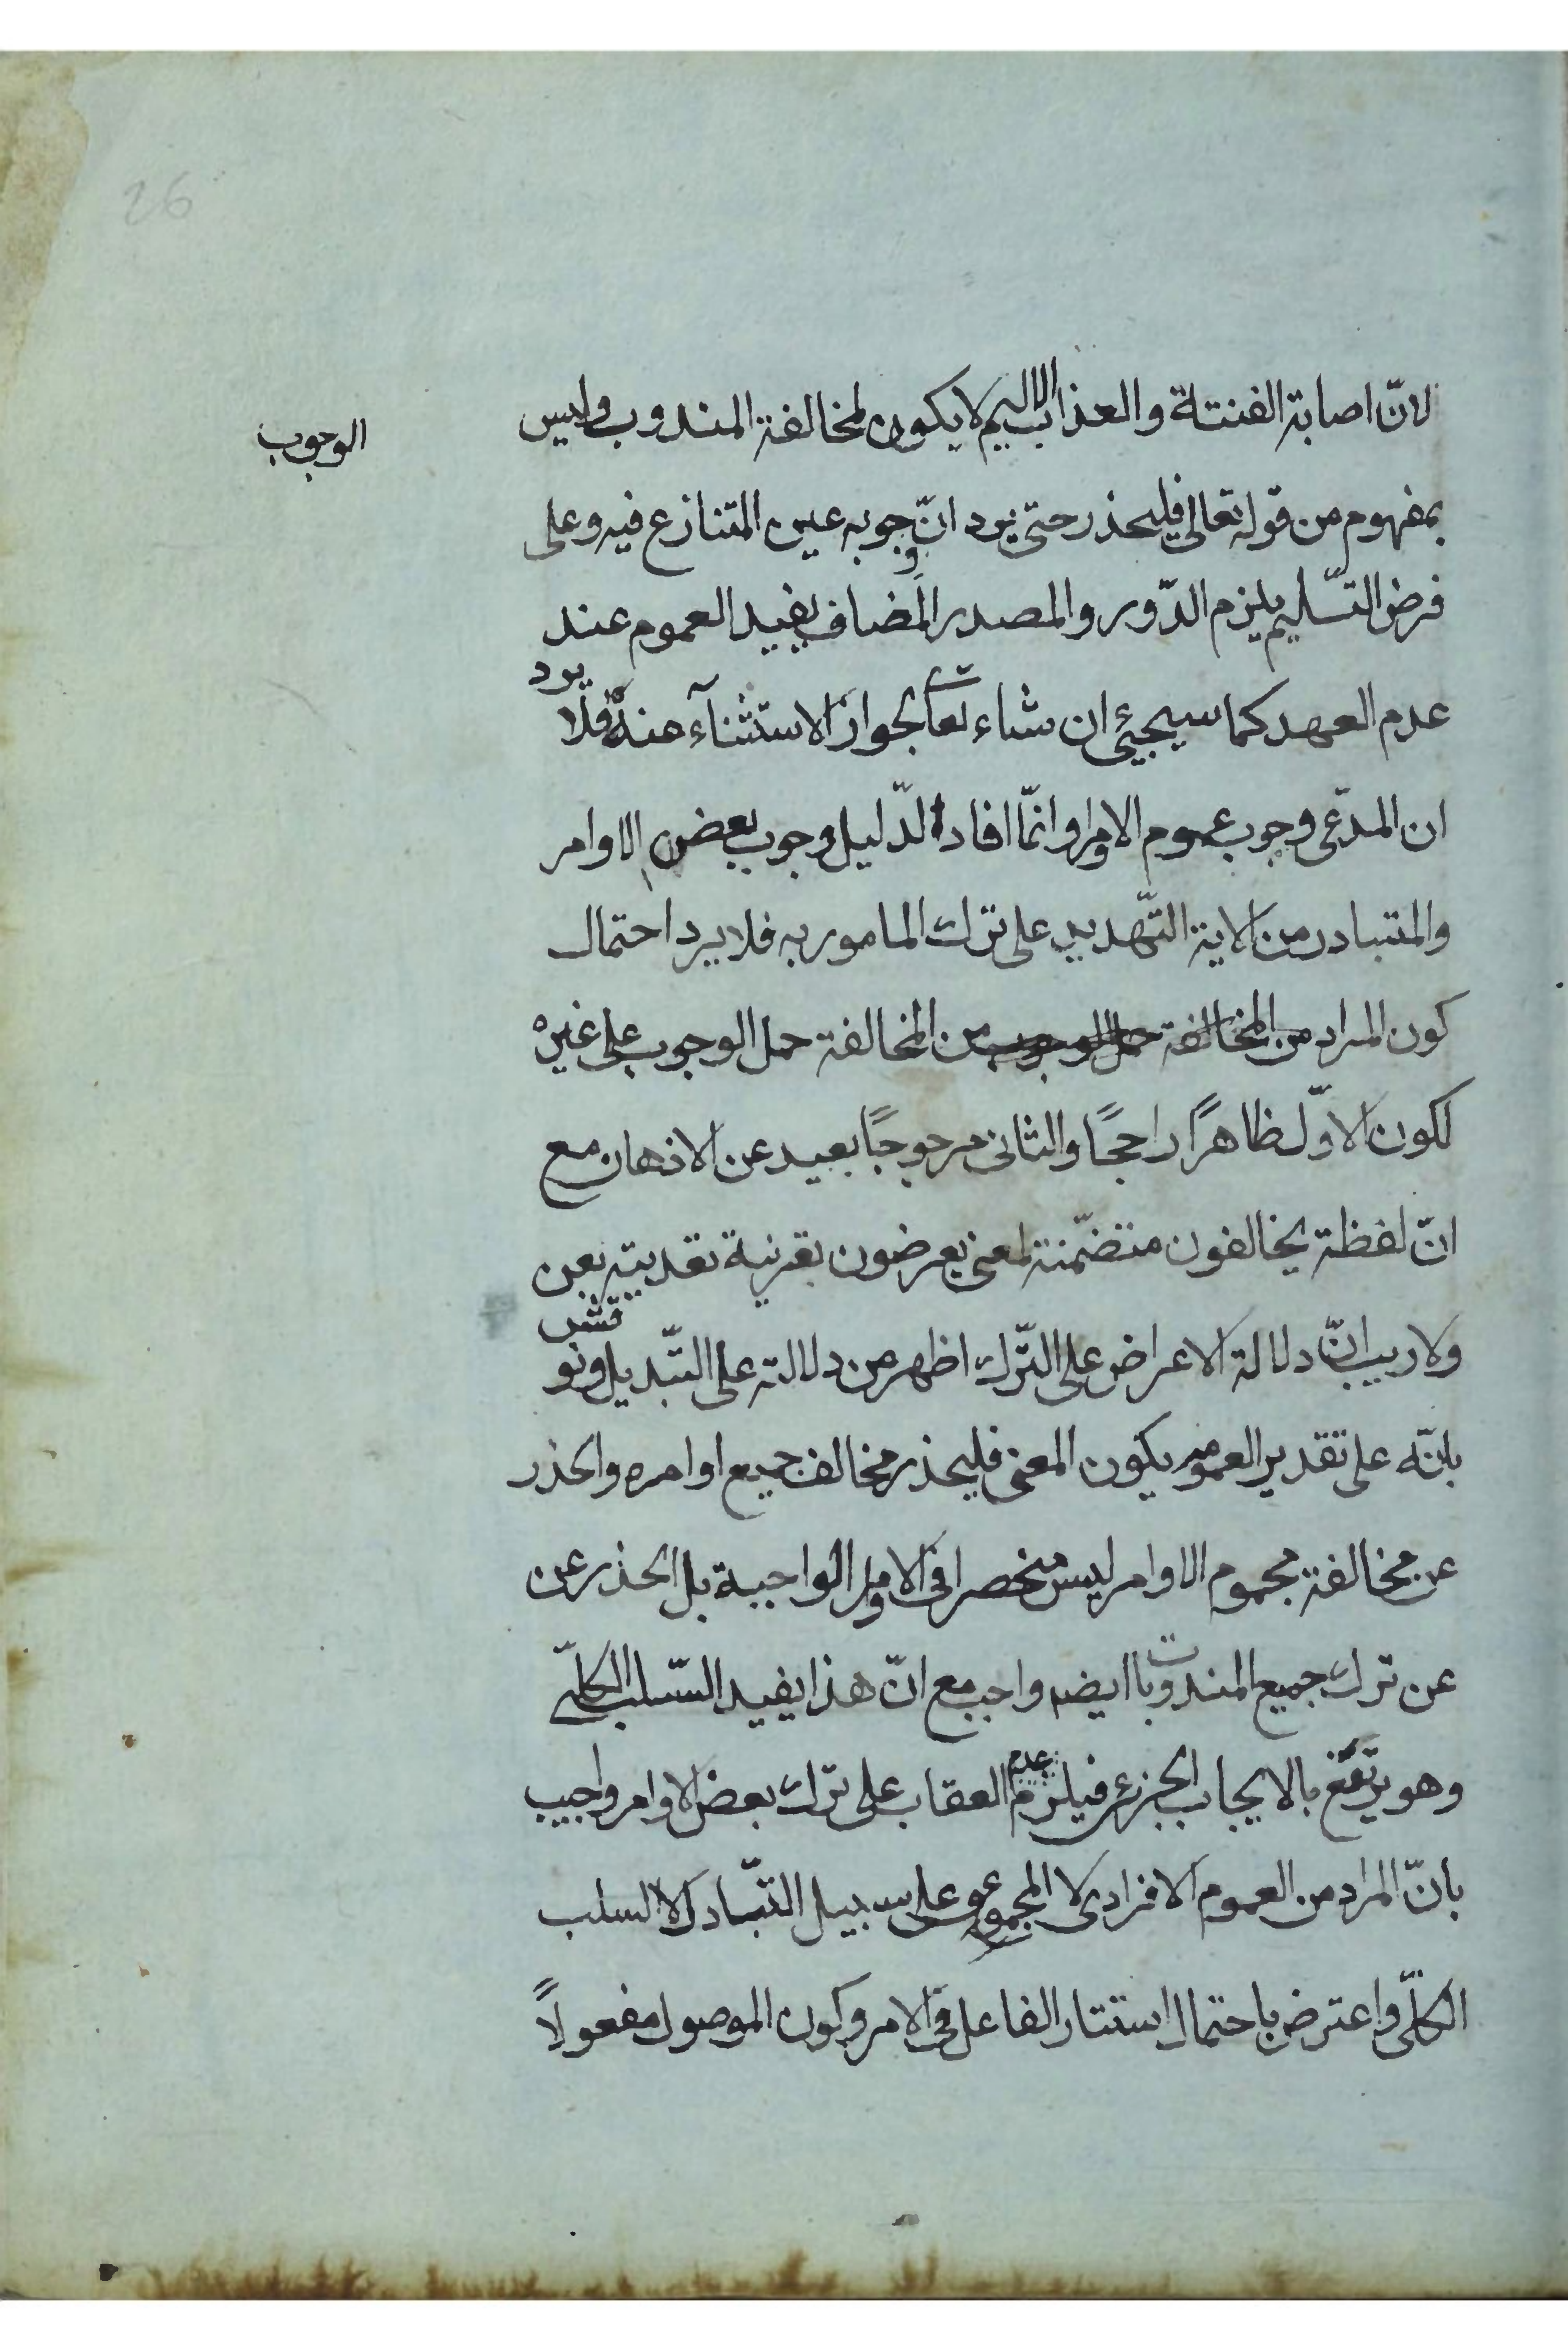 26
لانّ اصابة الفنتة والعذاب الاليم لا يكون لمخالفة المندوب وليس
الوجوب
بمفهوم من قوله تعالى فليحذر حتى يرد انّ وجوبه عين المتنازع فيه وعلى
فرض التسّليم يلزم الدّور والمصدر المضاف يفيد العموم عند
عدم العهد كما سيجيئ ان شاء تعا لجواز الاستثنآء عنه فلا يرد
ان المدّعى وجوب عموم الاوامر وانّما افاد الدّليل وجوب بعض الاوامر
والمتبادر من الاية التّهديد على ترك المامور به فلا يرد احتمال
كون المراد من المخالفة حمل الوجوب من المخالفة حمل الوجوب على غيره
لكون الاوّل ظاهرًا راجحًا والثانى مرجوحًا بعيد عن الاذهان مع
انّ لفظة يخالفون متضمّنة لمعنى يعرضون بقرينة تعديته بعن
ولا ريب انّ دلالة الاعراض على التّرك اظهر من دلالته على التّبديل ونوقش
بانّه على تقدير العموم يكون المعنى فليحذر مخالف جميع اوامره والحذر
عن مخالفة مجموم الاوامر ليس منحصرا فى الاوامر الواجبة بل الحذر عن
عن ترك جميع المندوبات ايضه واجب مع انّ هذا يفيد السّلب الكلّى
وهو يرتفع بالايجاب الجزئى فيلزم عدم العقاب على ترك بعض الاوامر واجيب
بانّ المراد من العموم الافرادى لا المجموعى على سبيل التبّادل لا السلب
الكلّى واعترض باحتمال استتار الفاعل فى الامر وكون الموصول مفعولاً